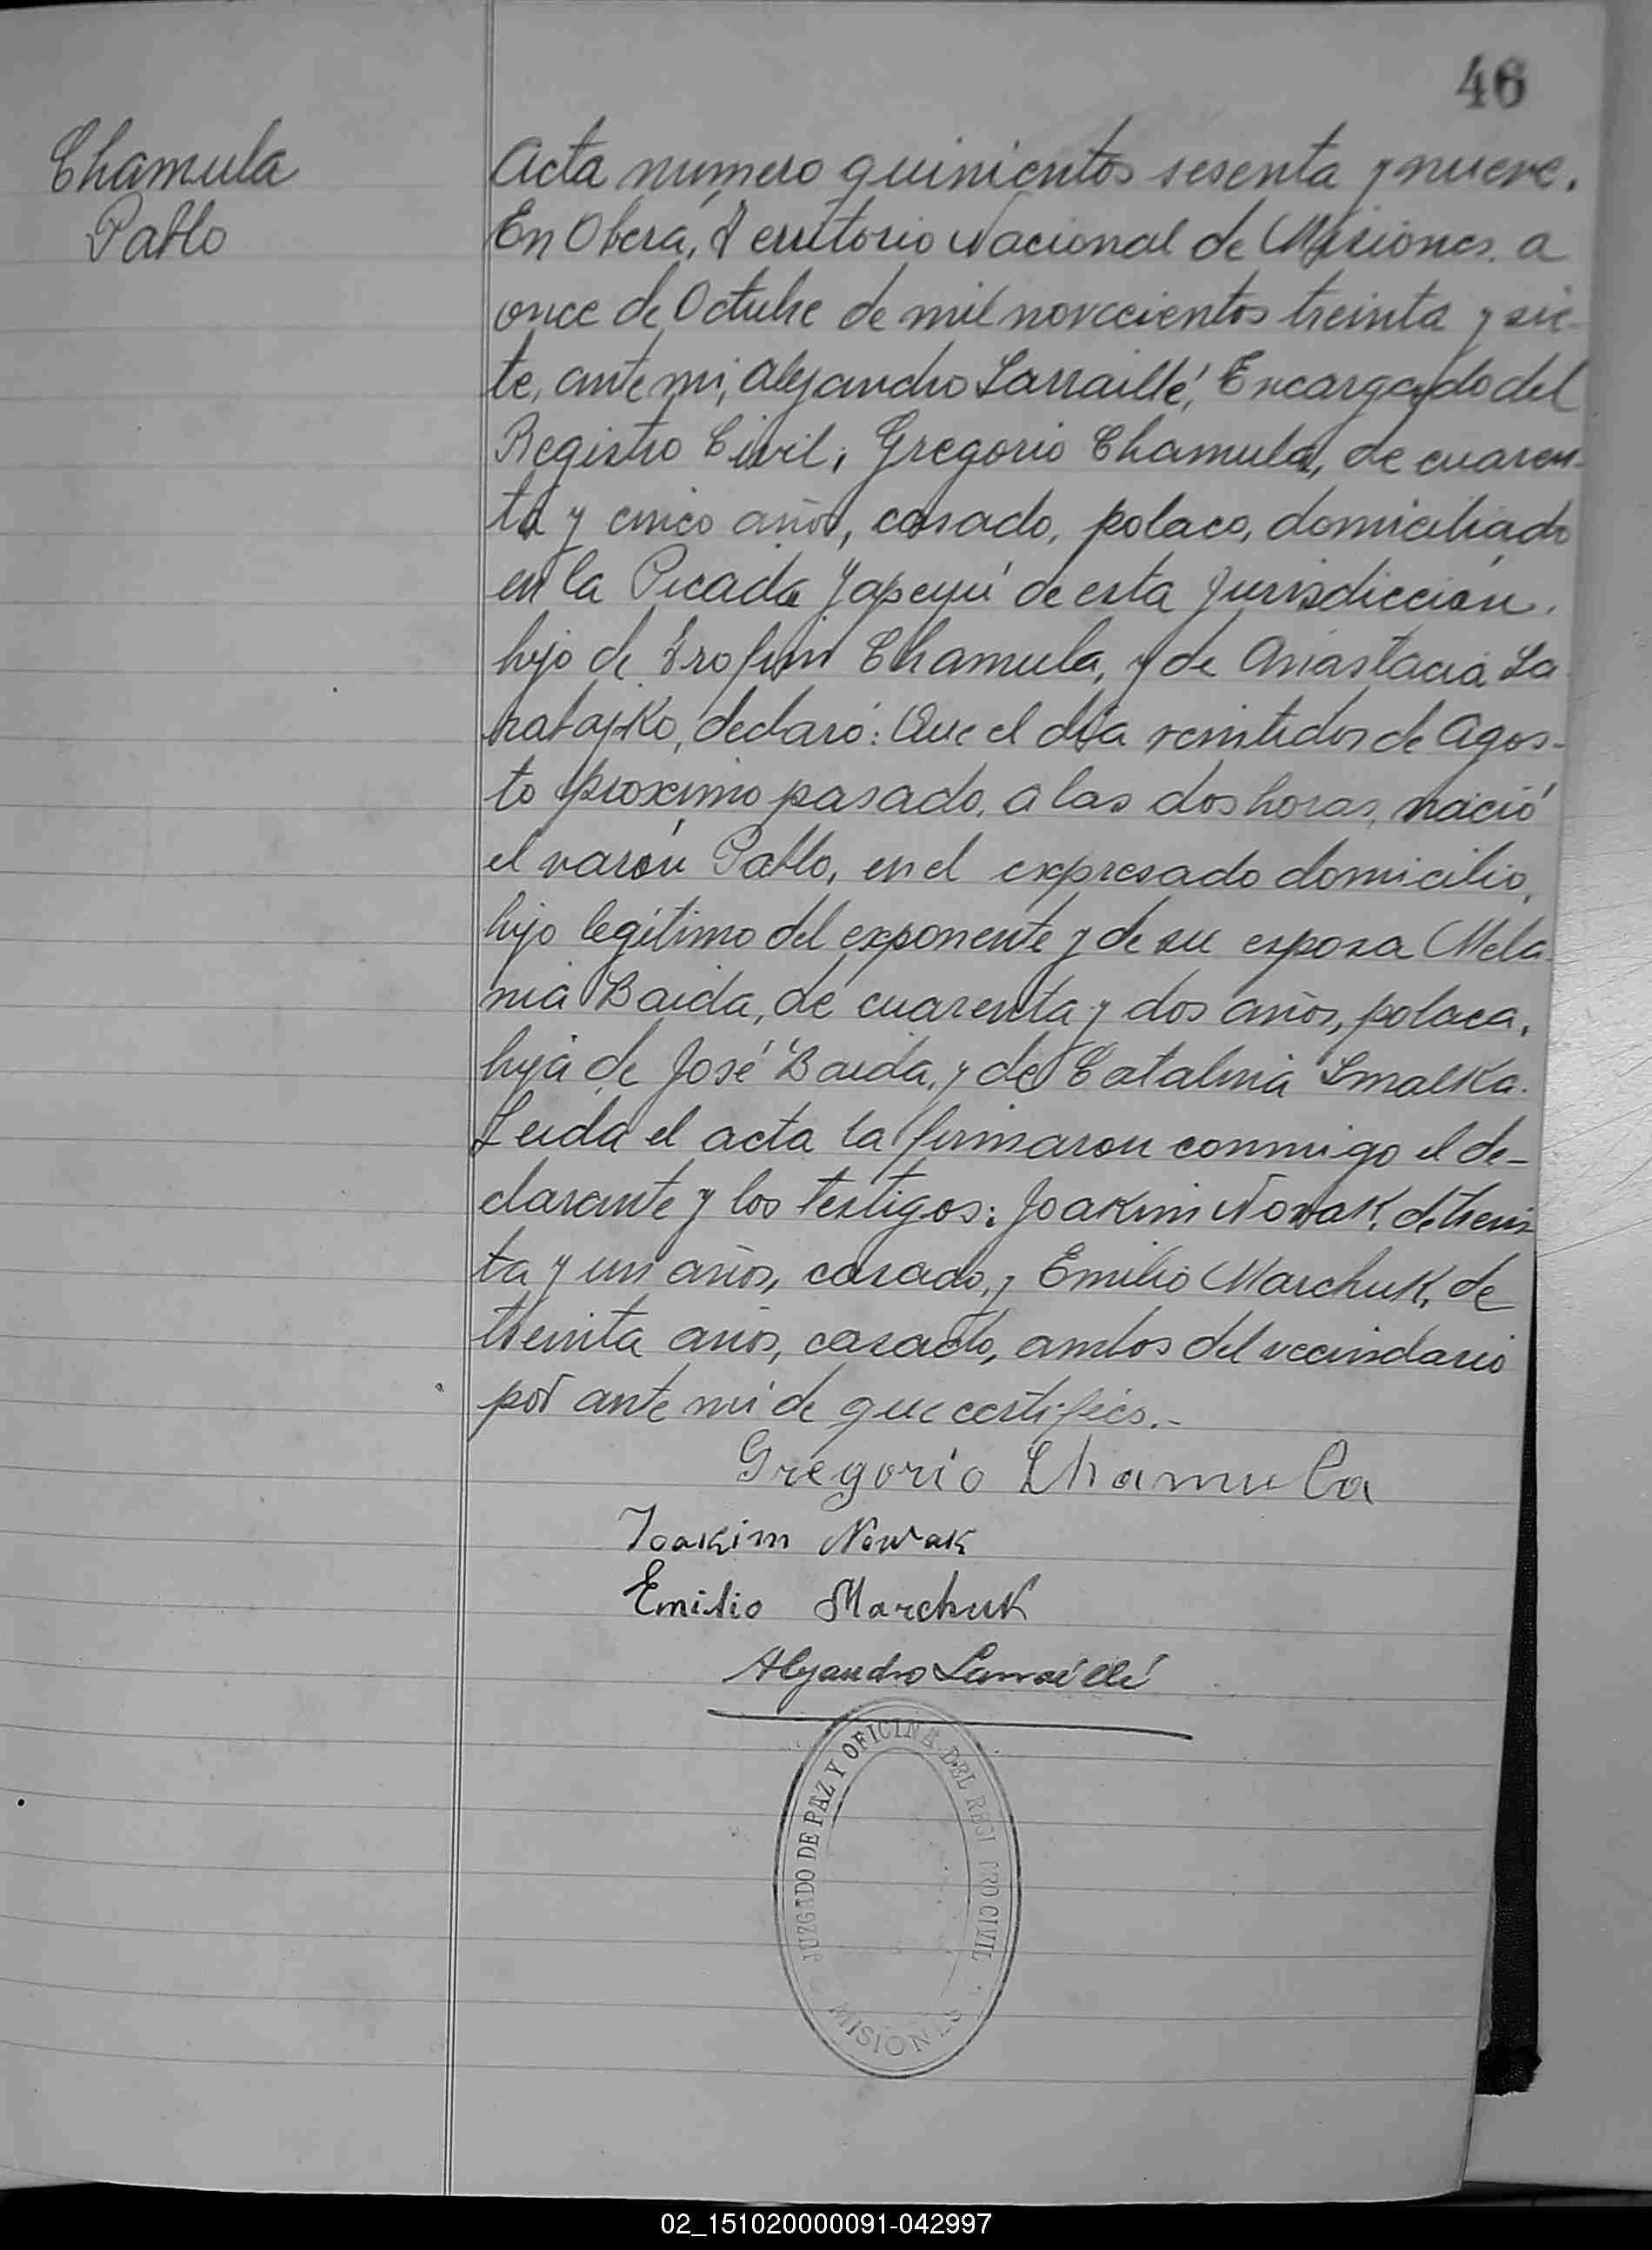 46
Chamula
Pablo
Acta número quinientos sesenta y nueve.
En Oberá, Territorio Nacional de Misiones, a
once de Octubre de mil novecientos treinta y sie-
te, ante mi, Alejandro Larraillé, Encargado del
Registro Civil, Gregorio Chamula, de cuaren-
ta y cinco años, casado, polaco, domiciliado
en la Picada Yapeyú de esta Jurisdicción,
hijo de Trofim Chamula, y de Anastacia
declaró: Que el día veintidos de Agos-
to proximo pasado, a las dos horas, nació
el varón Pablo, en el expresado domicilio,
hijo legítimo del exponente y de su esposa Mela
nia Baida, de cuarenta y dos años, polaca,
hija de José Baida, y de Catalina Smalka.
Leida el acta la firmaron conmigo el de-
clarante y los testigos: Joakim Nowak, de trein
ta y un años, casado, y Emilio Marchuk, de
treinta años, casado, ambos del vecindario
por ante mi de que certifico.-
Gregorio Chamula
Joakim Nowak
Emilio Marchuk
Alejandro Larraillé
JUZGADO DE PAZ Y OFICINA DEL REGISTRO CIVIL
MISIONES
02_151020000091-042997